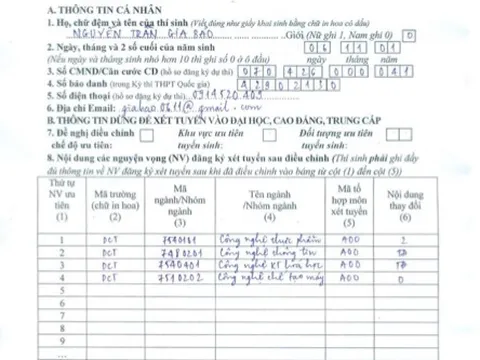 A. THÔNG TIN CÁ NHÂN
1. Họ, chữ đệm và tên của thí sinh (Viết đúng như giấy khai sinh bằng chữ in hoa có dấu)
NGUYỄN TRẦN GIA BẢO Giới (Nữ ghi 1, Nam ghi 0) 0
2. Ngày, tháng và 2 số cuối của năm sinh 06 11 01
(Nếu ngày và tháng sinh nhỏ hơn 10 thì ghi số 0 ở ô đầu) ngày tháng năm
3. Số CMND/Căn cước CD (hồ sơ đăng ký dự thi)
4. Số báo danh (trong Kỳ thi THPT Quốc gia)
5. Số điện thoại (hồ sơ đăng ký dự thi)
6. Địa chỉ Email: giabao0611@gmail.com
B. THÔNG TIN DÙNG ĐỂ XÉT TUYỂN VÀO ĐẠI HỌC, CAO ĐẲNG, TRUNG CẤP
7. Đề nghị điều chỉnh Khu vực ưu tiên Đối tượng ưu tiên
chế độ ưu tiên: tuyển sinh: tuyển sinh:
8. Nội dung các nguyện vọng (NV) đăng ký xét tuyển sau điều chỉnh (Thí sinh phải ghi đầy
đủ thông tin về NV đăng ký xét tuyển sau khi đã điều chỉnh vào bảng từ cột (1) đến cột (5))
Thứ tự NV ưu tiên (1) Mã trường (chữ in hoa) (2) Mã ngành/Nhóm ngành (3) Tên ngành /Nhóm ngành (4) Mã tổ hợp môn xét tuyển (5) Nội dung thay đổi (6)
1 DCT 7540101 Công nghệ thực phẩm A00 2
2 DCT 7480201 Công nghệ thông tin A00
3 DCT Công nghệ KT hóa học A00
4 DCT 7510202 Công nghệ chế tạo máy A00 0
5
6
7
8
9
...